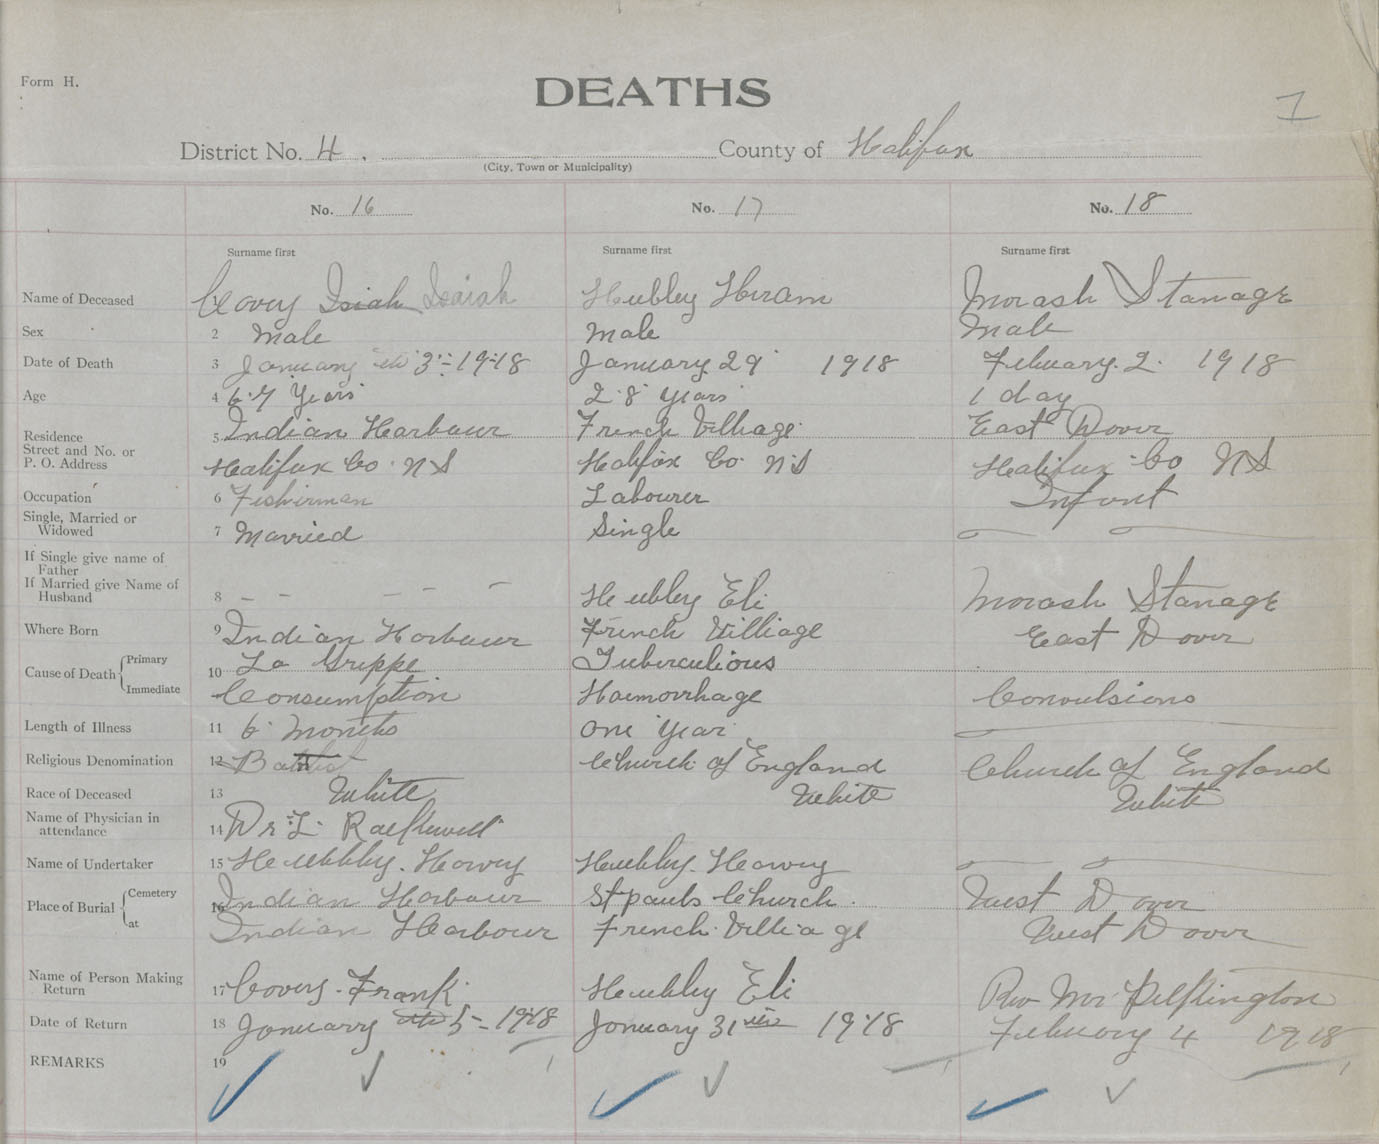 Form H.
DEATHS
7
District No. 4, County of Halifax
(City, Town or Municipality)
No. 16 No. 17 No. 18
Surname first Surname first Surname first
Name of Deceased 1 Covey Isiah Isaiah Hubley Hiram Morash Stanage
Sex 2 Male Male Male
Date of Death 3 January 3 - 1918 January 29 1918 February 2 1918
Age 4 67 Years 28 years 1 day
Residence 5 Indian Harbour French Village East Dover
Street and No. or
P. O. Address Halifax Co. NS Halifax Co. NS Halifax Co NS
Occupation 6 Fisherman Labourer Infant
Single, Married or
Widowed 7 Married Single
If Single give name of
Father
If Married give Name of
Husband 8 - - - - Hubley Eli Morash Stanage
Where Born 9 Indian Harbour French Villiage East Dover
Cause of Death Primary 10 La Grippe Tuberculious
Immediate Consumption Haemorrhage Convulsions
Length of Illness 11 6 Months One Year
Religious Denomination 12 Church of England Church of England
Race of Deceased 13 White White White
Name of Physician in
attendance 14 Dr L.
Name of Undertaker 15 Heubley. Harvey Heubley. Harvey
Place of Burial Cemetery 16 Indian Harbour St pauls Church. West Dover
at Indian Harbour French Villiage West Dover
Name of Person Making
Return 17 Covey - Frank Heubley Eli Rev Mr Pilkington
Date of Return 18 January 5 - 1918 January 31 1918 February 4 1918
REMARKS 19